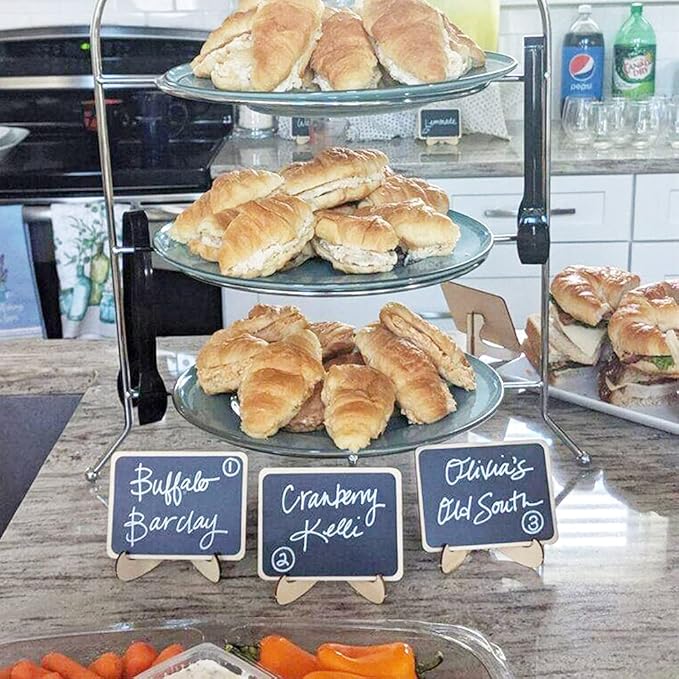 pepsi
CANADA
DRY
Lemonade
Buffalo ①
Barclay
Cranberry
Kelli
②
Olivia's
Old South
③